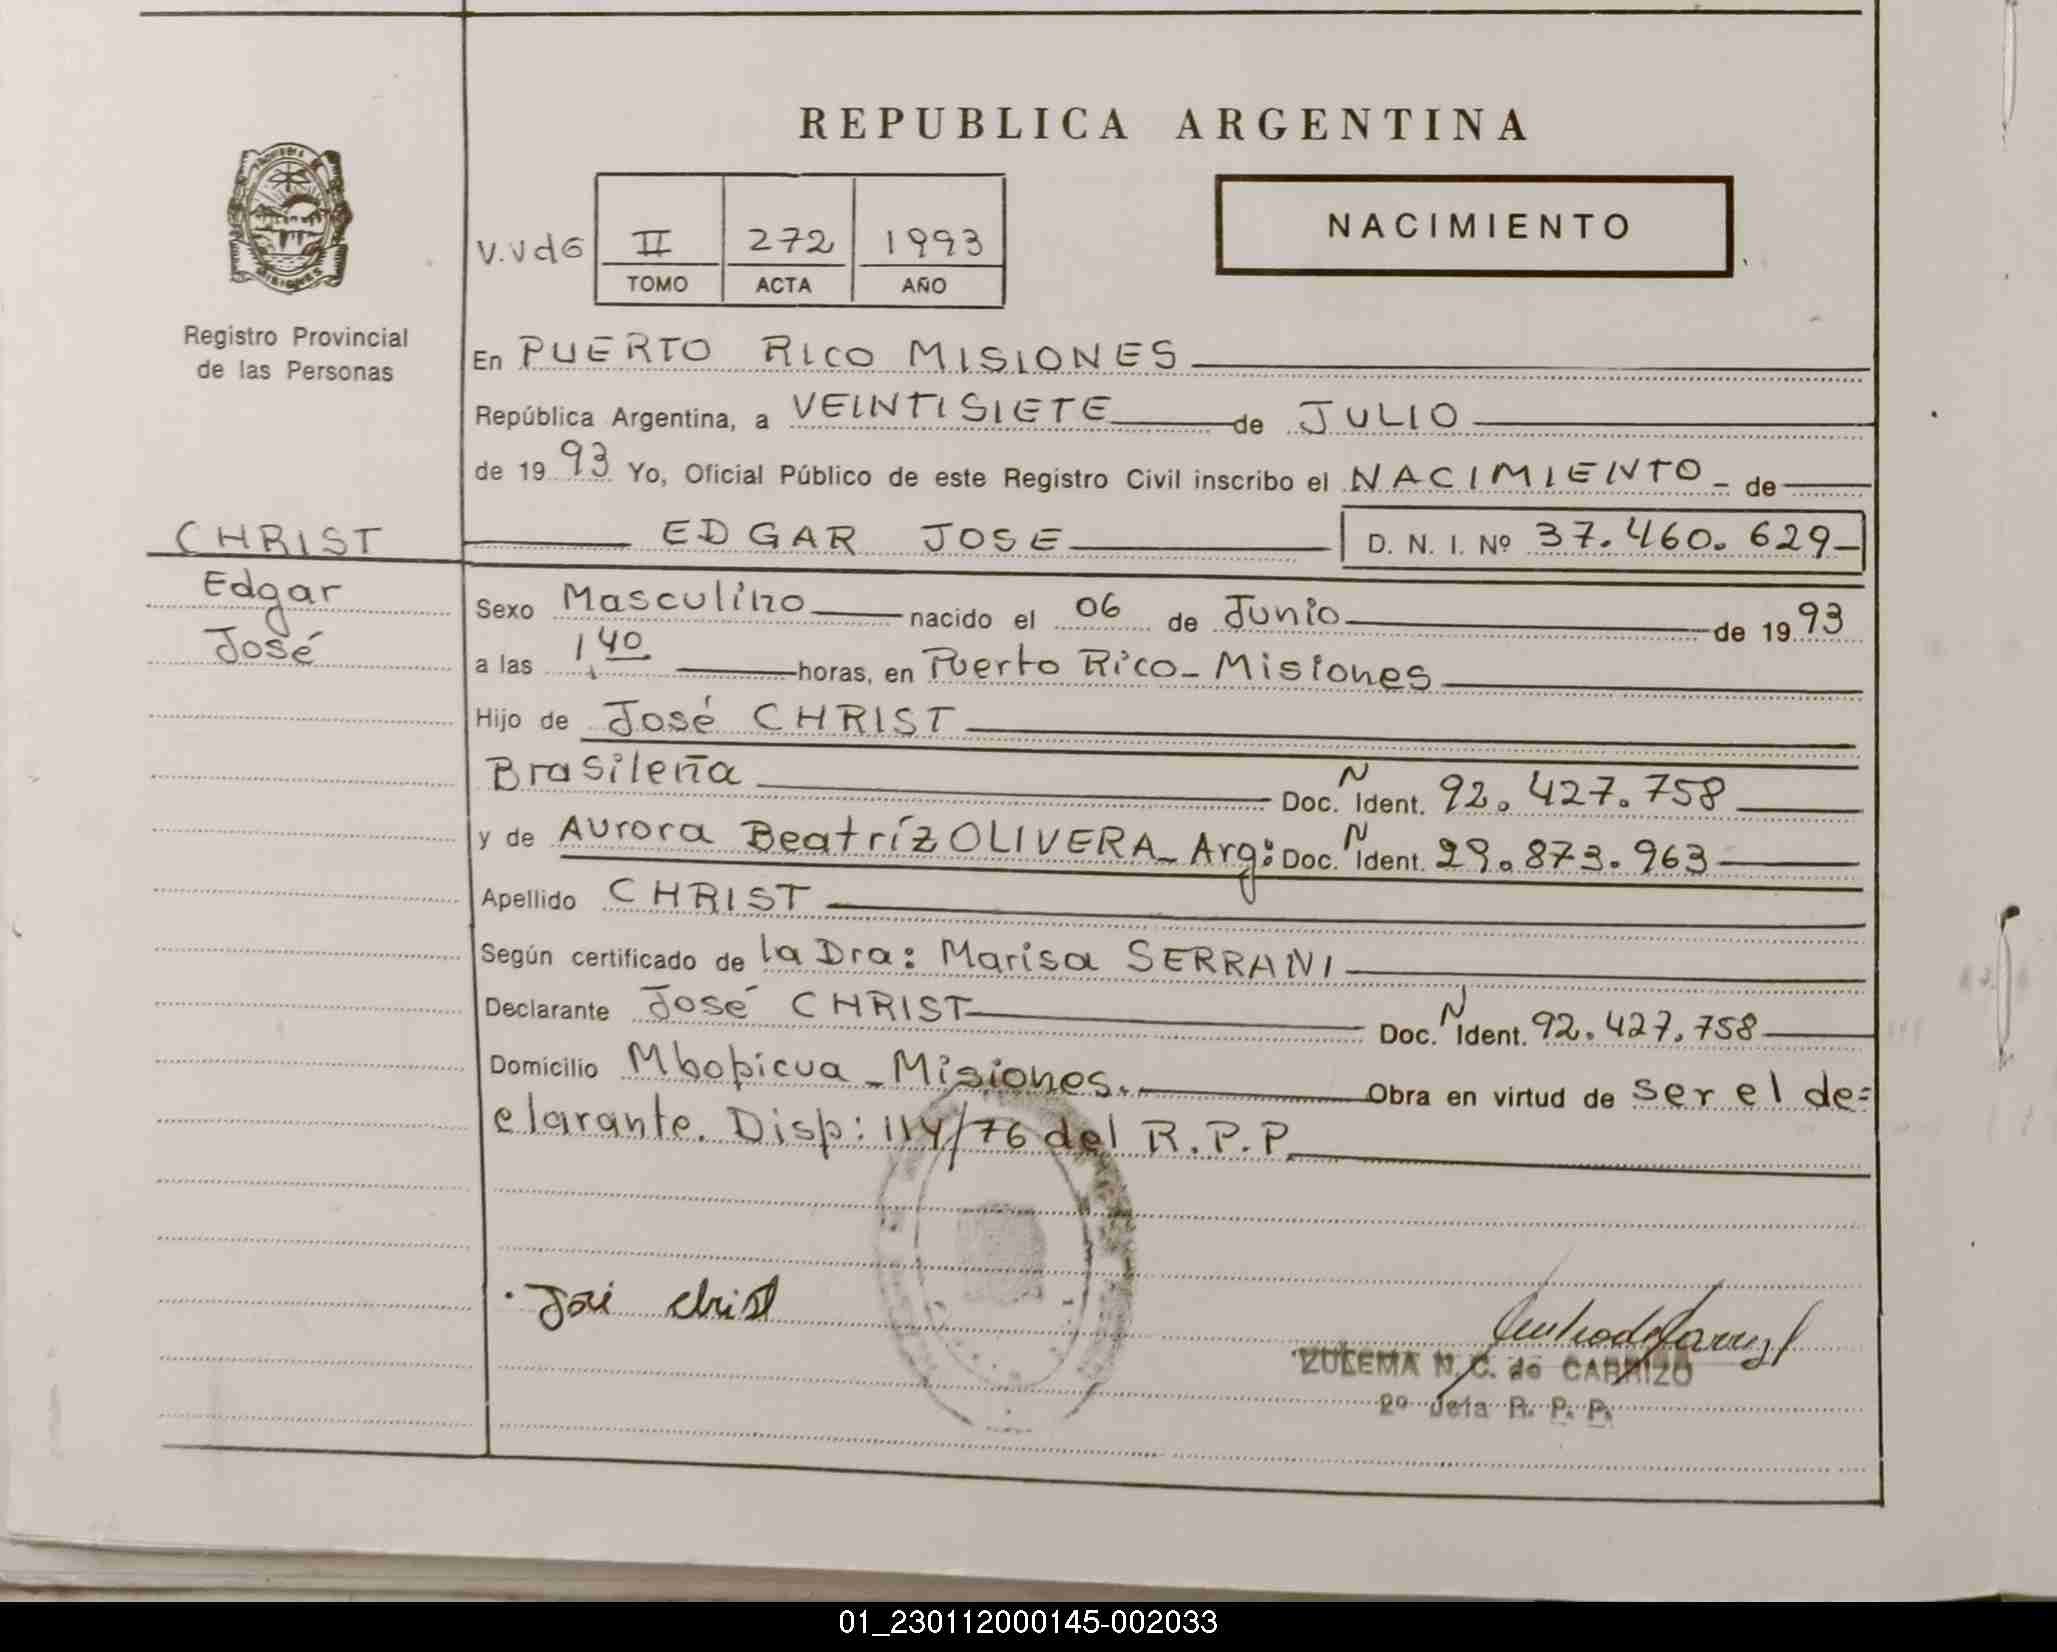 REPUBLICA ARGENTINA
NACIMIENTO
V.VdG II 272 1993
TOMO ACTA AÑO
Registro Provincial
de las Personas
En PUERTO RICO MISIONES
República Argentina, a VEINTISIETE de JULIO
de 19 93 Yo, Oficial Público de este Registro Civil inscribo el NACIMIENTO de
CHRIST
EDGAR JOSE D. N. I. Nº 37.460.629
Edgar
José
Sexo Masculino nacido el 06 de Junio de 19 93
a las 1,40 horas, en Puerto Rico - Misiones
Hijo de José CHRIST
Brasileña Doc. N Ident. 92.427.758
y de Aurora Beatríz OLIVERA - Arg: Doc. N Ident. 29.873.963
Apellido CHRIST
Según certificado de la Dra: Marisa SERRANI
Declarante José CHRIST Doc. N Ident. 92.427.758
Domicilio Mbopicua - Misiones. Obra en virtud de ser el de=
clarante. Disp: 114/76 del R.P.P.
José Christ
ZULEMA N. C. de CARRIZO
2º Jefa R. P. P.
01_230112000145-002033